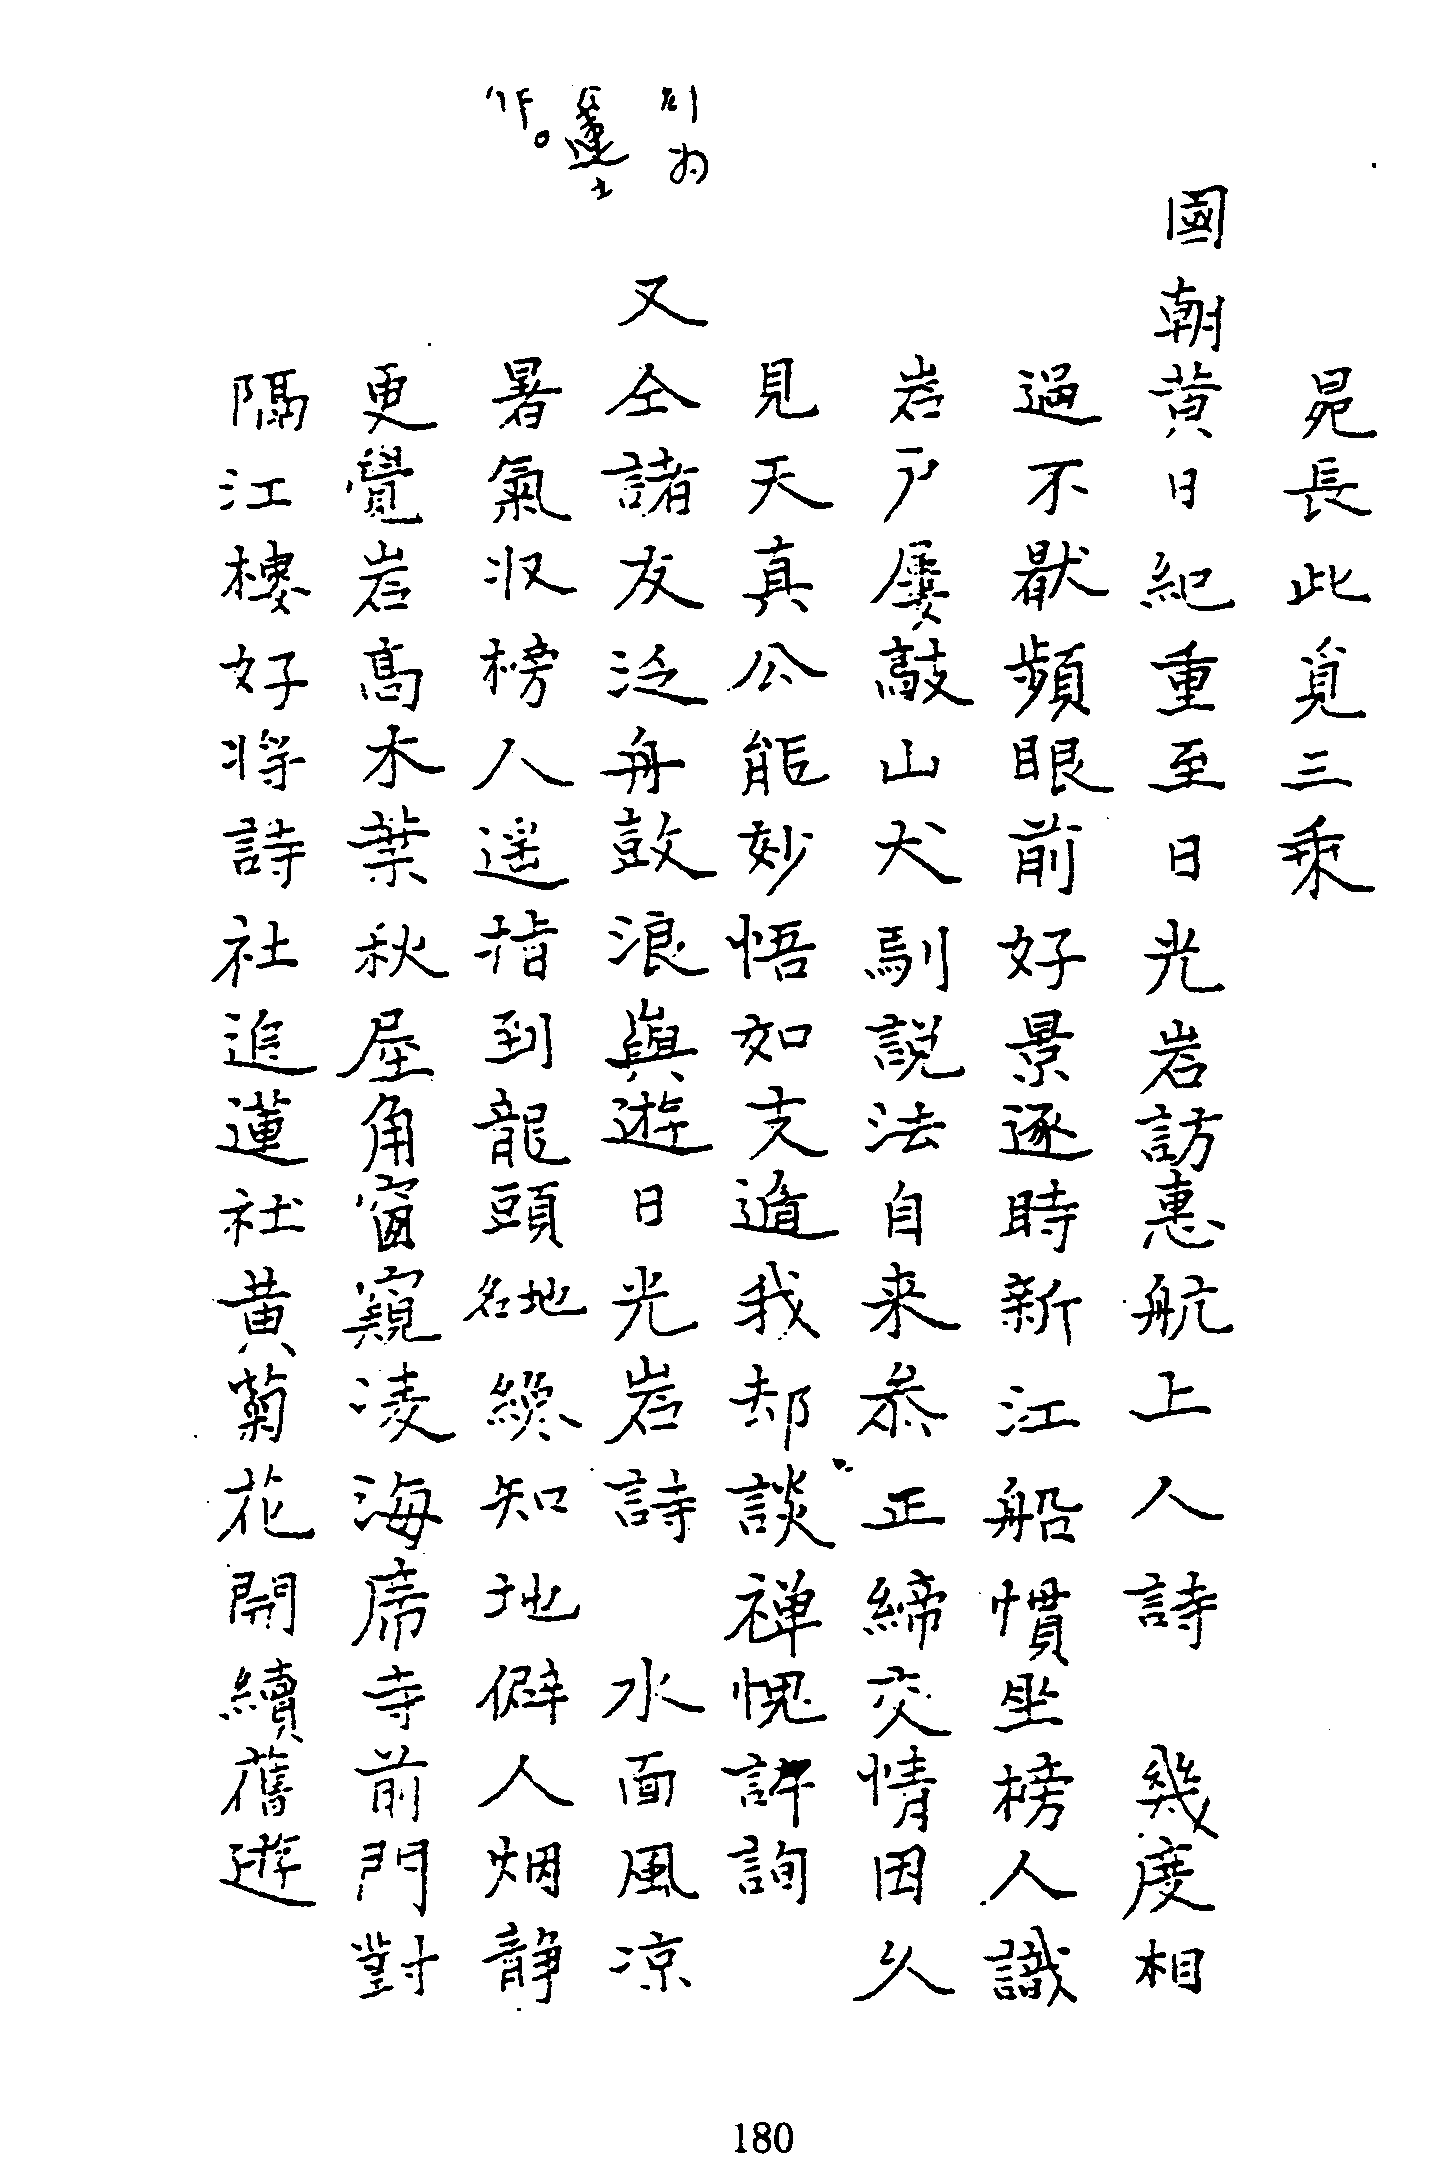 晃長此覓三乘
國朝黃日紀重至日光岩訪惠航上人詩　幾度相
過不厭頻眼前好景逐時新江船慣坐榜人識
岩戶屢敲山犬馴說法自来叅正締交情因久
見天真公能妙悟如支遁我却談禅愧許詢
又仝諸友泛舟鼓浪與遊日光岩詩　水面風凉
暑氣收榜人遥指到龍頭地名纔知地僻人烟静
更覺岩高木葉秋屋角窗窺凌海席寺前門對
隔江樓好将詩社追蓮社黃菊花開續舊遊
作。
180